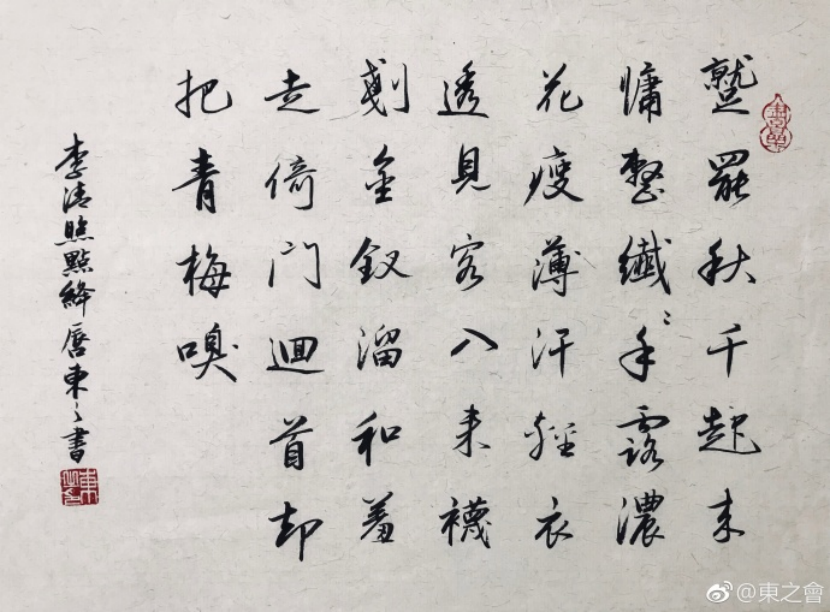 蹵罷秋千起来
慵整纖〻手露濃
花瘦薄汗輕衣
透見客入来襪
剗金釵溜和羞
走倚門迴首却
把青梅嗅
李清照點絳唇東〻書
@東之會